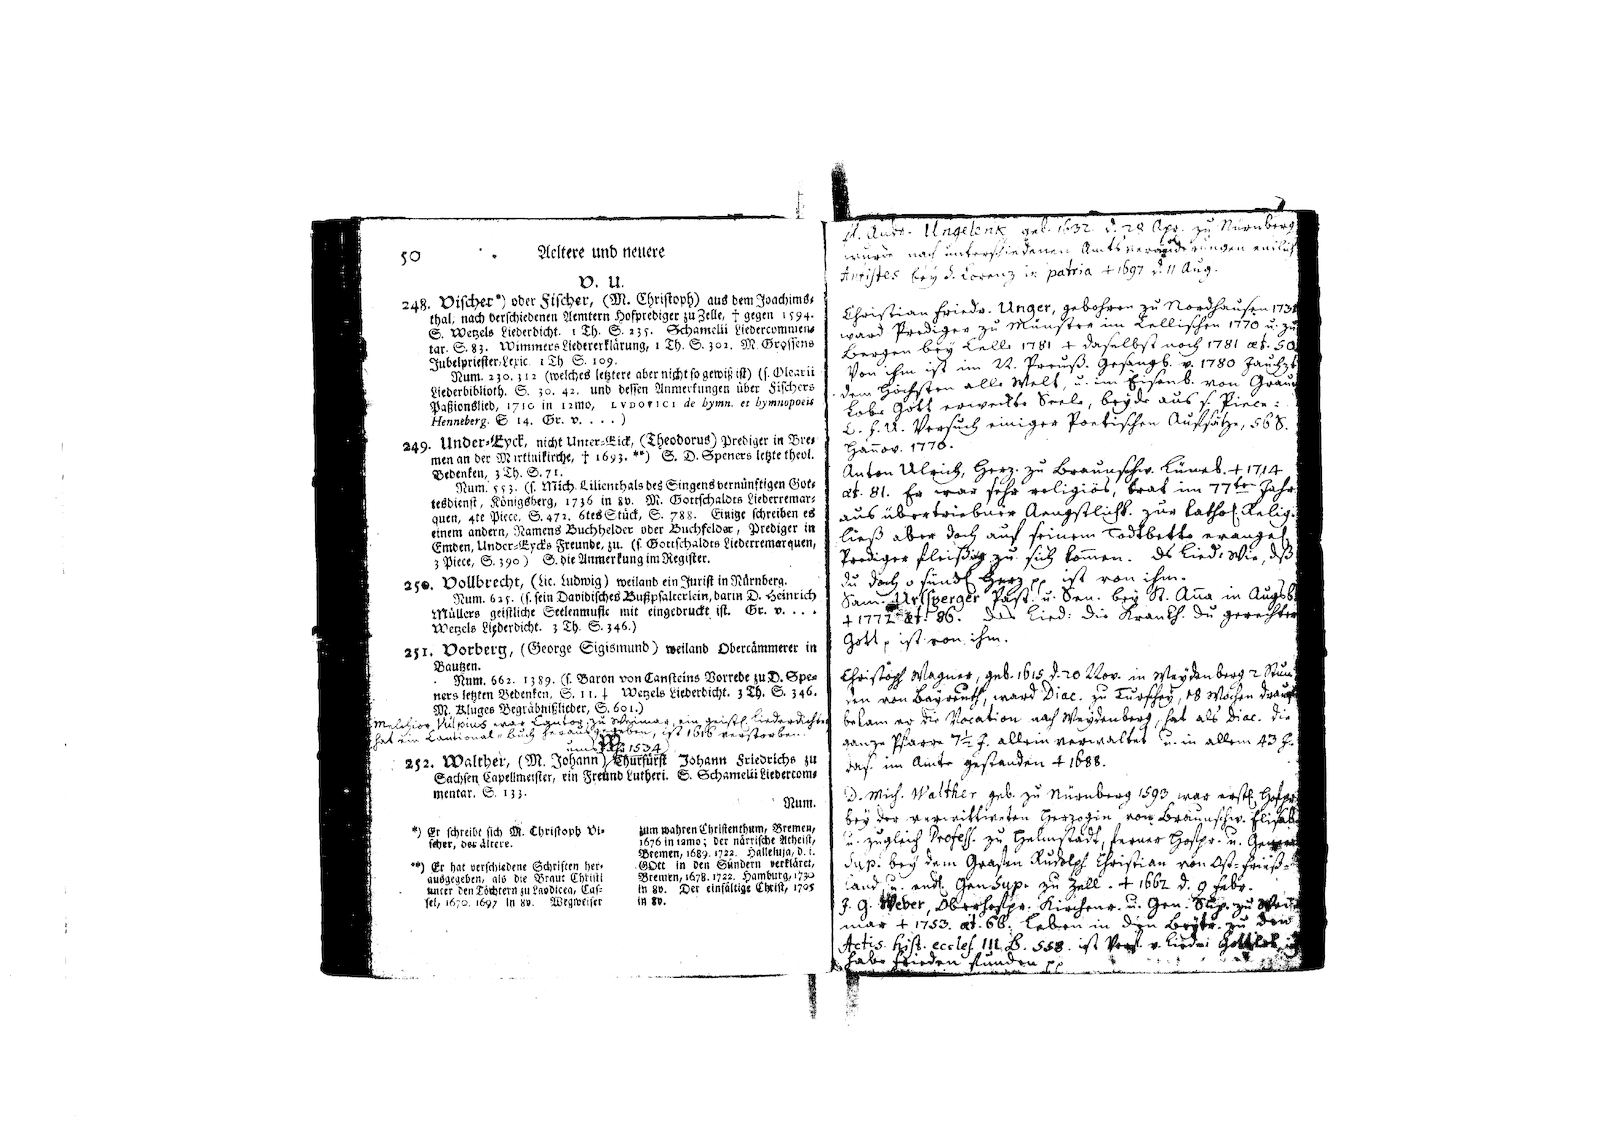 50 Aeltere und neuere
V. U.
248. Vischer*) oder Fischer, (M. Christoph) aus dem Joachims-
thal, nach verschiedenen Aemtern Hofprediger zu Zelle, † gegen 1594.
S. Wetzels Liederdicht. 1 Th. S. 235. Schamelii Liedercommen-
tar. S. 83. Wimmers Liedererklärung, 1 Th. S. 302. M. Grossens
Jubelpriester-Lexic. 1 Th S. 109.
Num. 230. 312 (welches letztere aber nicht so gewiß ist) (s. Olearii
Liederbiblioth. S. 30. 42. und dessen Anmerkungen über Fischers
Paßionslied, 1710 in 12mo, LVDOVICI de hymn. et hymnopoeis
Henneberg. S 14. Gr. v. . . . )
249. Under-Eyck, nicht Unter-Eick, (Theodorus) Prediger in Bre-
men an der Martinikirche, † 1693. **) S. D. Speners letzte theol.
Bedenken, 3 Th. S. 71.
Num. 553. (s. Mich. Lilienthals des Singens vernünftigen Got-
tesdienst, Königsberg, 1736 in 8v. M. Gottschaldts Liederremar-
quen, 4te Piece, S. 472. 6tes Stück, S. 788. Einige schreiben es
einem andern, Namens Buchhelder oder Buchfelder, Prediger in
Emden, Under-Eycks Freunde, zu. (s. Gottschaldts Liederremarquen,
3 Piece, S. 390 ) S. die Anmerkung im Register.
250. Vollbrecht, (Lic. Ludwig) weiland ein Jurist in Nürnberg.
Num. 625. (s. sein Davidisches Bußpsalterlein, darin D. Heinrich
Müllers geistliche Seelenmusik mit eingedruckt ist. Gr. v. . . .
Wetzels Liederdicht. 3 Th. S. 346.)
251. Vorberg, (George Sigismund) weiland Obercämmerer in
Bautzen.
Num. 662. 1389. (s. Baron von Cansteins Vorrede zu D. Spe-
ners letzten Bedenken, S. 11. ‡ Wetzels Liederdicht. 3 Th. S. 346.
M. Kluges Begräbnißlieder, S. 601.)
Melchior Vulpius war Cantor zu Weimar, ein geistl. Liederdichter
hat ein Cantional-Buch herausgegeben, ist 1616 verstorben.
W.
um 1534
252. Walther, (M. Johann) Churfürst Johann Friedrichs zu
Sachsen Capellmeister, ein Freund Lutheri. S. Schamelii Liedercom-
mentar. S. 133.
Num.
*) Er schreibt sich M. Christoph Vi-
scher, der ältere.
**) Er hat verschiedene Schriften her-
ausgegeben, als die Braut Christi
unter den Töchtern zu Laodicea, Cas-
sel, 1670. 1697 in 8v. Wegweiser
zum wahren Christenthum, Bremen,
1676 in 12mo; der närrische Atheist,
Bremen, 1689. 1722. Halleluja, d. i.
GOtt in den Sündern verkläret,
Bremen, 1678. 1722. Hamburg, 1730
in 8v. Der einfältige Christ, 1705
in 8v.
Andr. Ungelenk geb. 1632 d. 28 Apr. zu Nürnberg
wurde nach unterschiedenen Amtsveränderungen endlich
Antistes bey S. Lorenz in patria † 1697 d. 11 Aug.
Christian Friedr. Unger, gebohren zu Nordhausen 1731
ward Prediger zu Münster im Cellischen 1770 u. zu
Bergen bey Celle 1781 † daselbst noch 1781 æt. 50
Von ihm ist im N. Preuß. Gesangb. v. 1780 Jauchzt
dem Höchsten alle Welt, u. im Eisenb. von
Lobe Gott erweckte Seele, beyde aus s. Piece:
C. F. U. Versuch einiger Poetischen Aufsätze, 56 S.
Hannov. 1770.
Anton Ulrich, Herz. zu Braunschw. Lüneb. † 1714
æt. 81. Er war sehr religiös, trat im 77ten Jahr
aus übertriebner Aengstlichk. zur kathol. Relig.
ließ aber doch auf seinem Todtbette evangel.
Prediger fleißig zu sich kommen. Ds Lied: Wie, dß
du doch o sündl Herz pp ist von ihm.
Sam. Urlsperger Past. u. Sen. bey St. Anna in Augsb.
† 1772 æt. 86. Das Lied: die Krankh. du gerechter
Gott, ist von ihm.
Christoph Wagner, geb. 1615 d. 20 Nov. in Weydenberg 2 Stun
den von Bayreuth, ward Diac. zu 18 Wochen drauf
bekam er die Vocation nach Weydenberg, hat als Diac. die
ganze Pfarre 7½ J. allein verwaltet u. in allem 43 J.
das. im Amte gestanden † 1688.
D. Mich. Walther geb. zu Nürnberg 1593 war erstl. Hofpr.
bey der verwittweten Herzogin von Braunschw. Elisab.
u. zugleich Profess. zu Helmstädt, ferner Hofpr. u. General
Sup. bey dem Grafen Rudolph Christian von Ost-Frieß-
land u. endl. Gen Sup. zu Zell. † 1662 d. 9 Febr.
J. G. Weber, Oberhofpr. Kirchenr. u. Gen. Sup. zu Wei
mar † 1753. æt. 66. Leben in den Beytr. zu den
Actis. hist. eccles. III B. 558. ist Verf. v. Lied:
habe Frieden funden pp